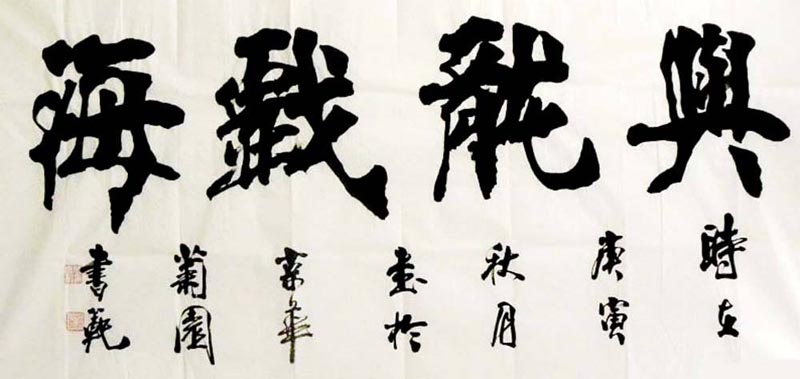 與龍戲海
時在
庚寅
秋月
書於
京華
菊園
書範